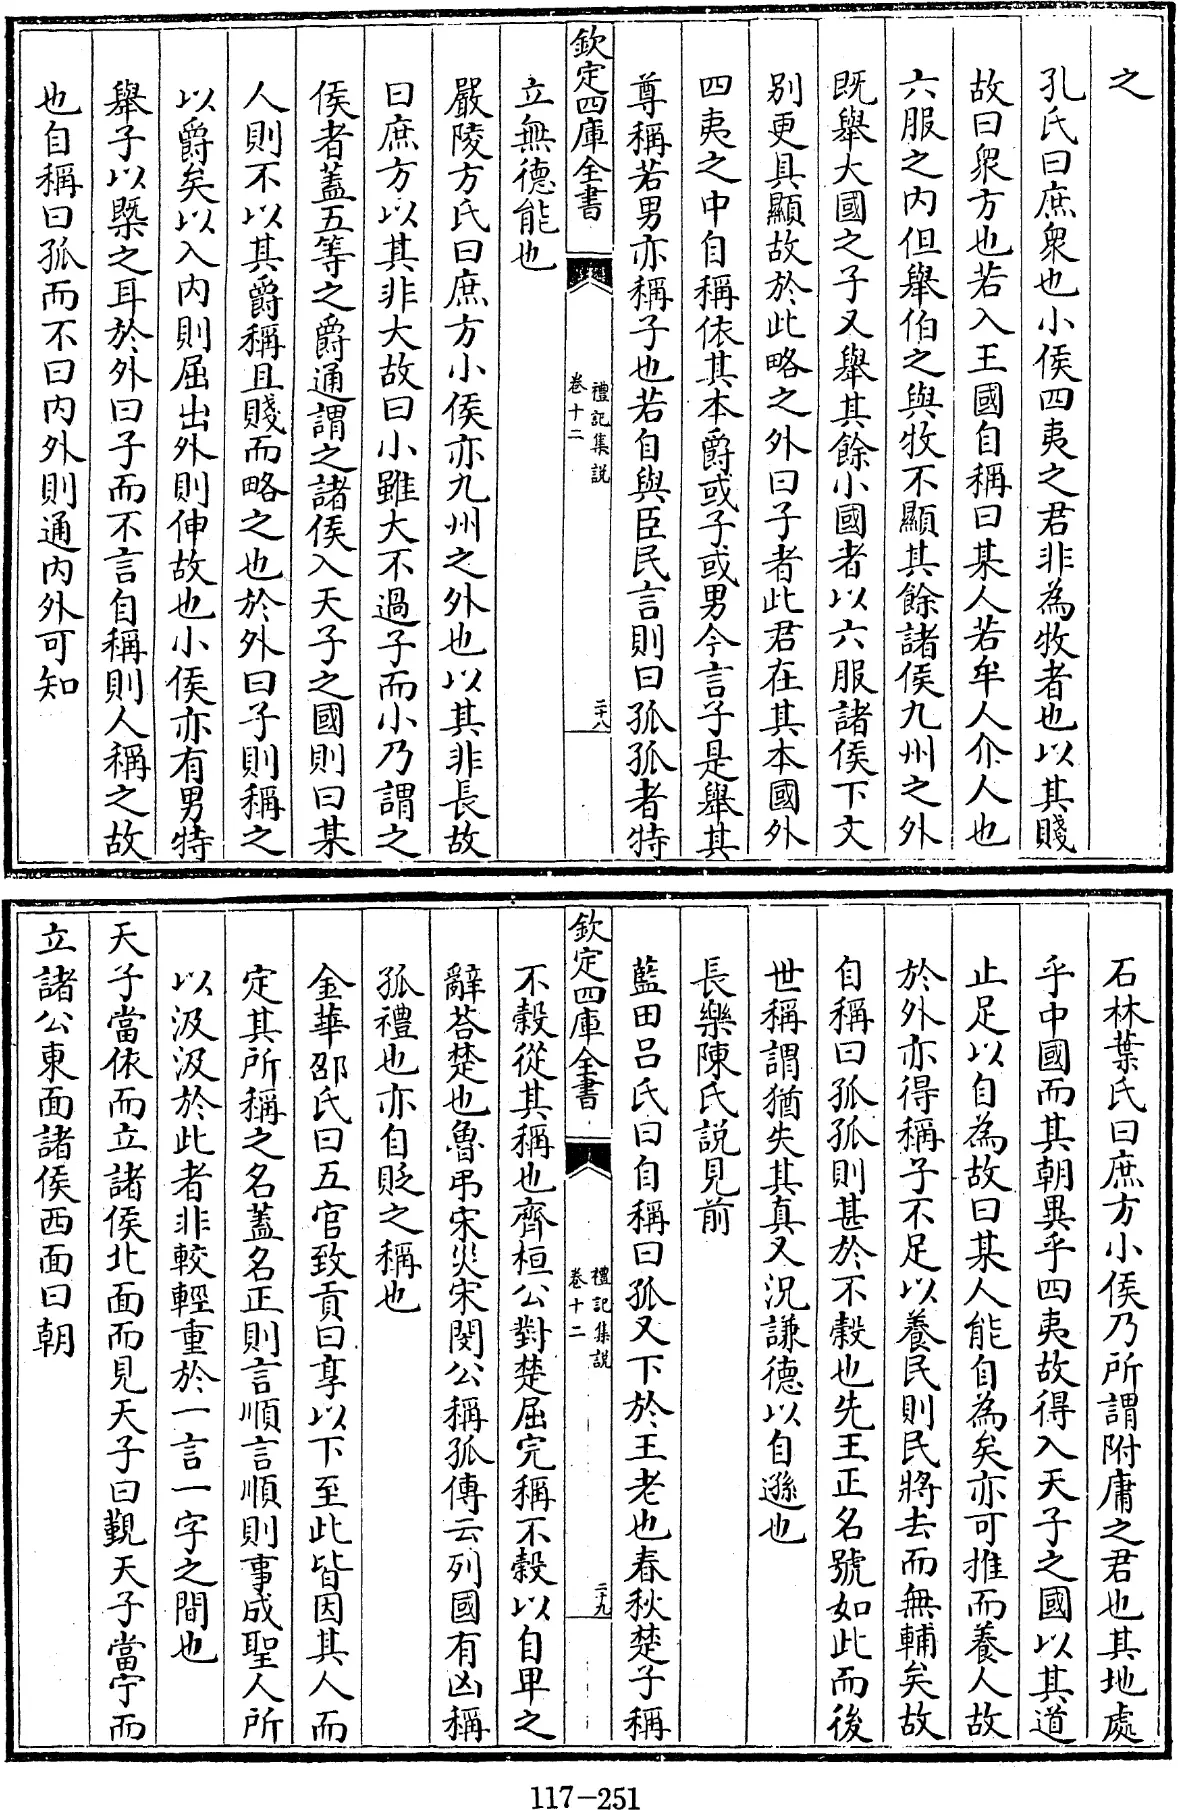 之
孔氏曰庶衆也小侯四夷之君非為牧者也以其賤
故曰衆方也若入王國自稱曰某人若牟人介人也
六服之内但舉伯之與牧不顯其餘諸侯九州之外
既舉大國之子又舉其餘小國者以六服諸侯下文
別更具顯故於此略之外曰子者此君在其本國外
四夷之中自稱依其本爵或子或男今言子是舉其
尊稱若男亦稱子也若自與臣民言則曰孤孤者特
立無德能也
欽定四庫全書
禮記集説
卷十二
二十八
嚴陵方氏曰庶方小侯亦九州之外也以其非長故
曰庶方以其非大故曰小雖大不過子而小乃謂之
侯者蓋五等之爵通謂之諸侯入天子之國則曰某
人則不以其爵稱且賤而略之也於外曰子則稱之
以爵矣以入内則屈出外則伸故也小侯亦有男特
舉子以槩之耳於外曰子而不言自稱則人稱之故
也自稱曰孤而不曰内外則通内外可知
石林葉氏曰庶方小侯乃所謂附庸之君也其地處
乎中國而其朝異乎四夷故得入天子之國以其道
止足以自為故曰某人能自為矣亦可推而養人故
於外亦得稱子不足以養民則民將去而無輔矣故
自稱曰孤孤則甚於不穀也先王正名號如此而後
世稱謂猶失其真又況謙德以自遜也
長樂陳氏説見前
藍田吕氏曰自稱曰孤又下於王老也春秋楚子稱
欽定四庫全書
禮記集説
卷十二
二十九
不穀從其稱也齊桓公對楚屈完稱不穀以自卑之
辭荅楚也魯弔宋災宋閔公稱孤傳云列國有凶稱
孤禮也亦自貶之稱也
金華邵氏曰五官致貢曰享以下至此皆因其人而
定其所稱之名蓋名正則言順言順則事成聖人所
以汲汲於此者非較輕重於一言一字之間也
天子當依而立諸侯北面而見天子曰覲天子當宁而
立諸公東面諸侯西面曰朝
117-251